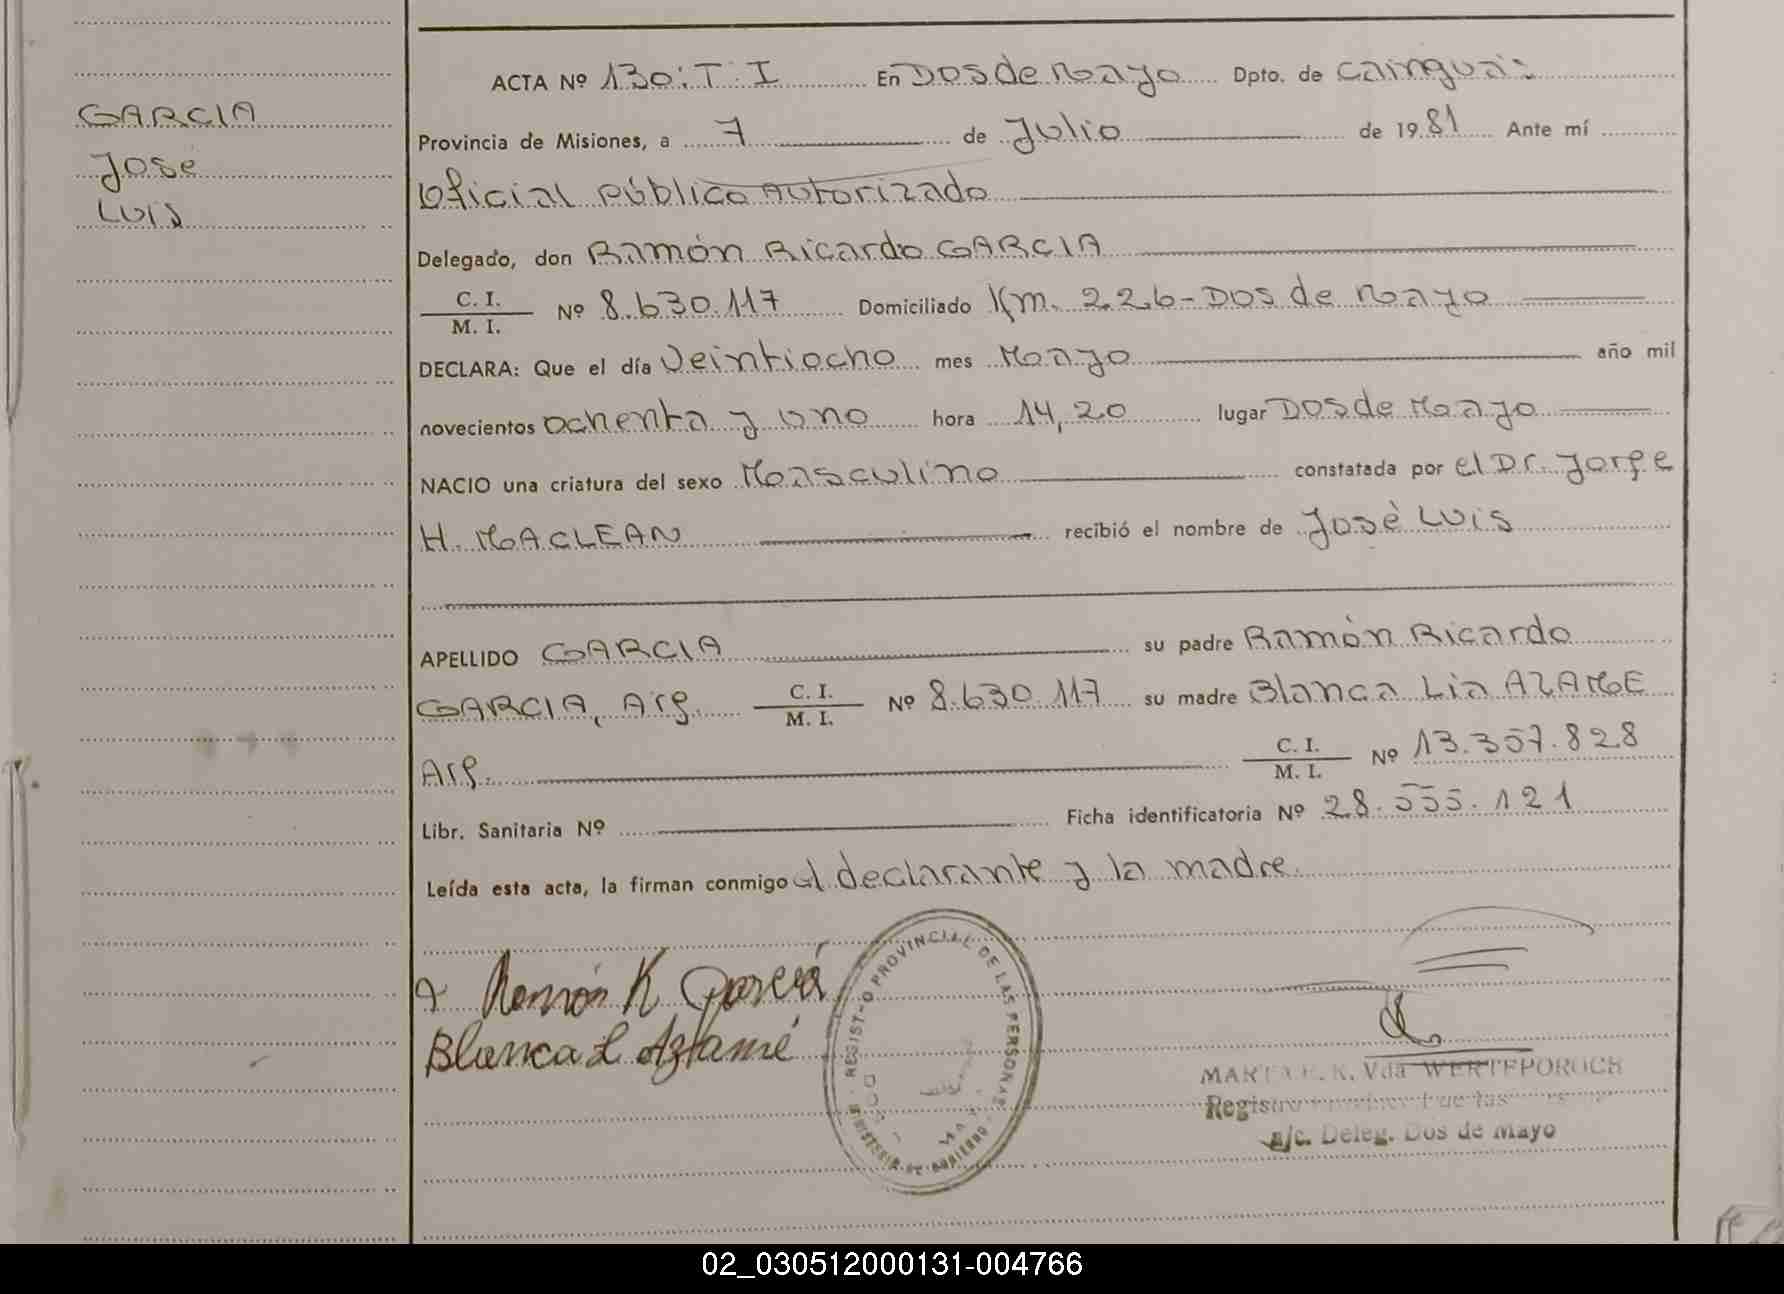 GARCIA
José
LUIS
ACTA Nº 130: T: I En Dos de Mayo Dpto. de Cainguás
Provincia de Misiones, a 7 de Julio de 1981 Ante mí
Oficial Público Autorizado
Delegado, don Ramón Ricardo GARCIA
C. I.
M. I.
Nº 8.630.117 Domiciliado Km. 226-Dos de Mayo
DECLARA: Que el día Veintiocho mes Mayo año mil
novecientos ochenta y uno hora 14,20 lugar Dos de Mayo
NACIO una criatura del sexo Masculino constatada por el Dr. Jorge
H. MACLEAN recibió el nombre de José Luis
APELLIDO GARCIA su padre Ramón Ricardo
GARCIA, Arg. C. I. M. I. Nº 8.630.117 su madre Blanca Lia AZAME
Arg. C. I. M. I. Nº 13.357.828
Libr. Sanitaria Nº Ficha identificatoria Nº 28.555.121
Leída esta acta, la firman conmigo el declarante y la madre.
Ramón R Garcia
Blanca L
REGISTRO PROVINCIAL DE LAS PERSONAS
MINISTERIO DE GOBIERNO
DOS
MARTA K. Vda WERTEPOROCH
a/c. Deleg. Dos de Mayo
02_030512000131-004766